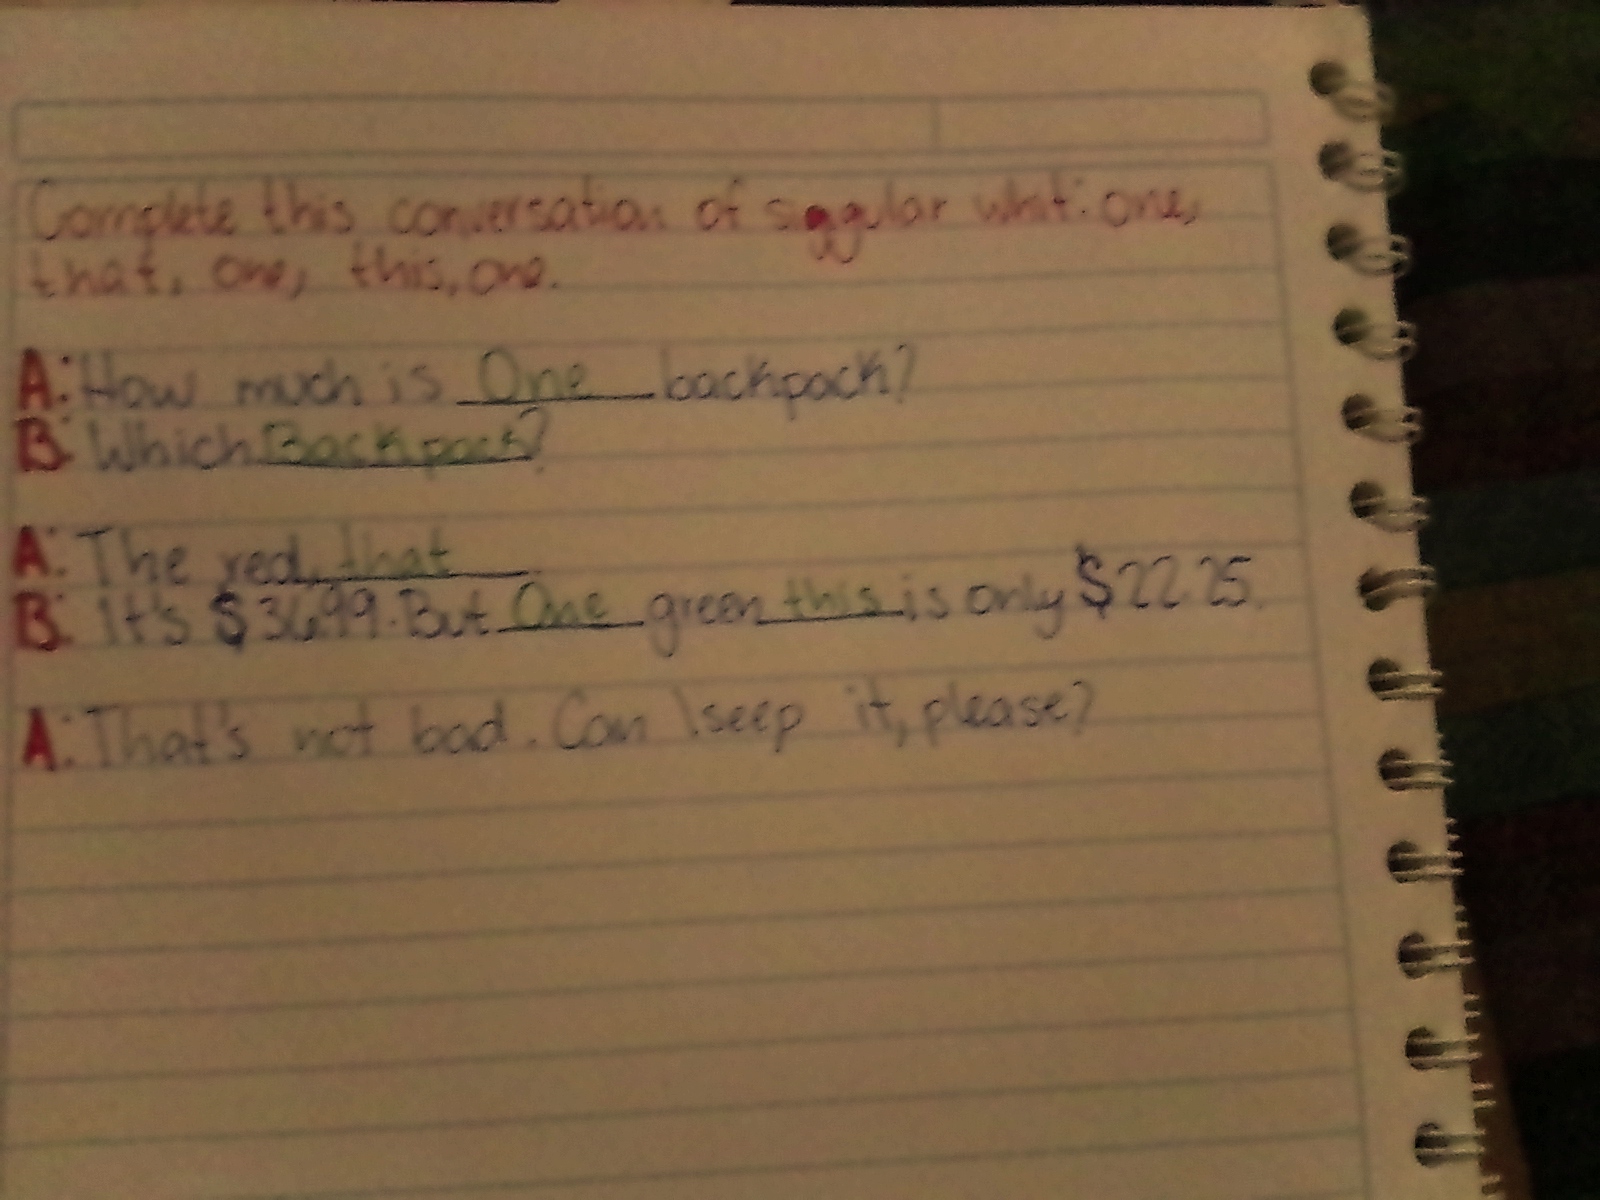 Complete this conversation of siggular whit: one,
that, one, this, one.
A: How much is One backpack?
B: Which Backpack?
A: The red, that.
B: It's $36.99. But One green this is only $22.25.
A: That's not bad. Can I seep it, please?